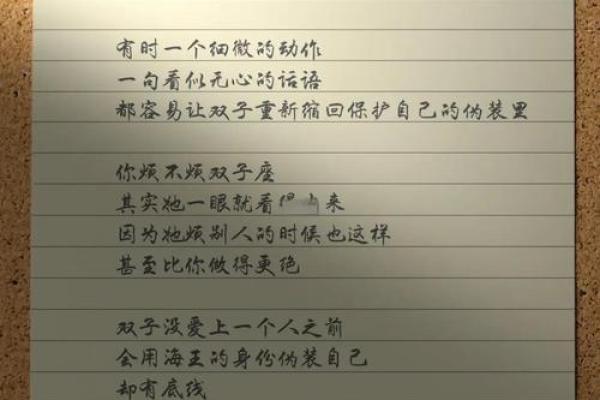 有时一个细微的动作
一句看似无心的话语
都容易让双子重新缩回保护自己的伪装里
你烦不烦双子座
其实她一眼就看 来
因为她烦别人的时候也这样
甚至比你做得更绝
双子没爱上一个人之前
会用海王的身份伪装自己
却有底线